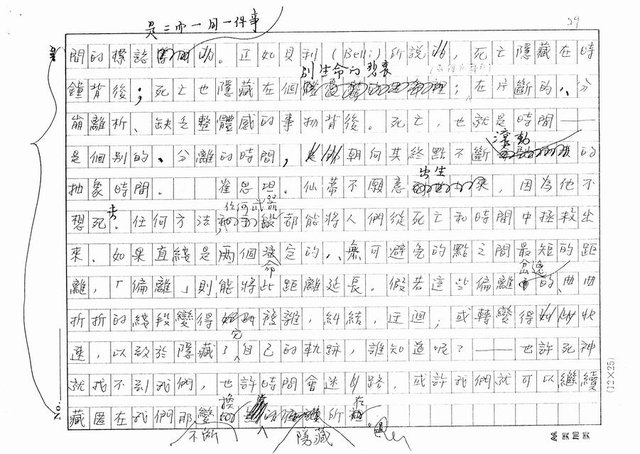 是二而一同一件事
29
間的標誌。正如貝利(Belli)所說的,死亡隱藏在時
別生命的背裏
鐘背後;死亡也隱藏在個;在片斷的、分
崩離析、缺乏整體感的事物背後。死亡,也就是時間——
滾動
是個別的、分離的時間,朝向其終點不斷的
出生
抽象時間。崔思坦.仙蒂不願意,因為他不
去 任何武器
想死。任何方法,都能將人們從死亡和時間中拯救出
來。如果直線是兩個命定的、無可避免的點之間最短的距
離,「偏離」則能將此距離延長。假若這些偏離的、曲曲
折折的線段變得複雜,糾結,迂迴,或轉變得快
速,以致於隱藏了自己的軌跡,誰知道呢?——也許死神
就找不到我們,也許時間會迷路,或許我們就可以繼續
藏匿在我們那變換所在
不斷 隱藏
(12×25)
No.